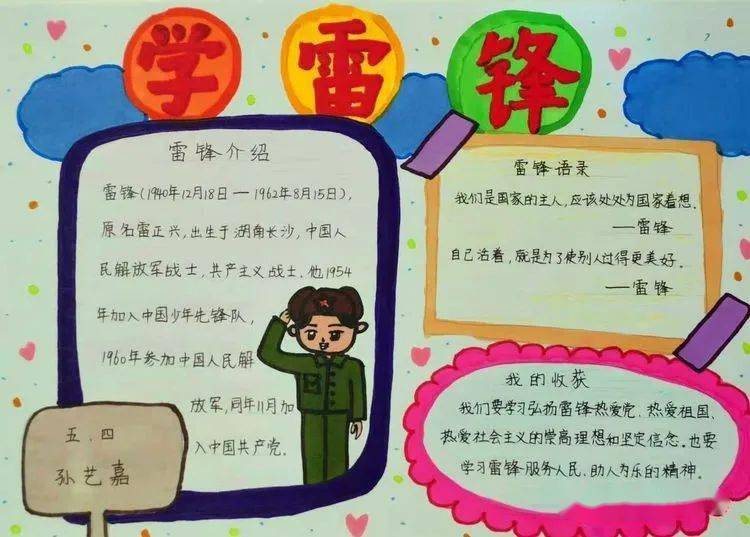 学雷锋
雷锋介绍
雷锋(1940年12月18日—1962年8月15日),
原名雷正兴,出生于湖南长沙,中国人
民解放军战士,共产主义战士.他1954
年加入中国少年先锋队,
1960年参加中国人民解
放军,同年11月加
入中国共产党.
五.四
孙艺嘉
雷锋语录
我们是国家的主人,应该处处为国家着想.
—雷锋
自己活着,就是为了使别人过得更美好.
—雷锋
我的收获
我们要学习弘扬雷锋热爱党.热爱祖国.
热爱社会主义的崇高理想和坚定信念.也要
学习雷锋服务人民、助人为乐的精神.